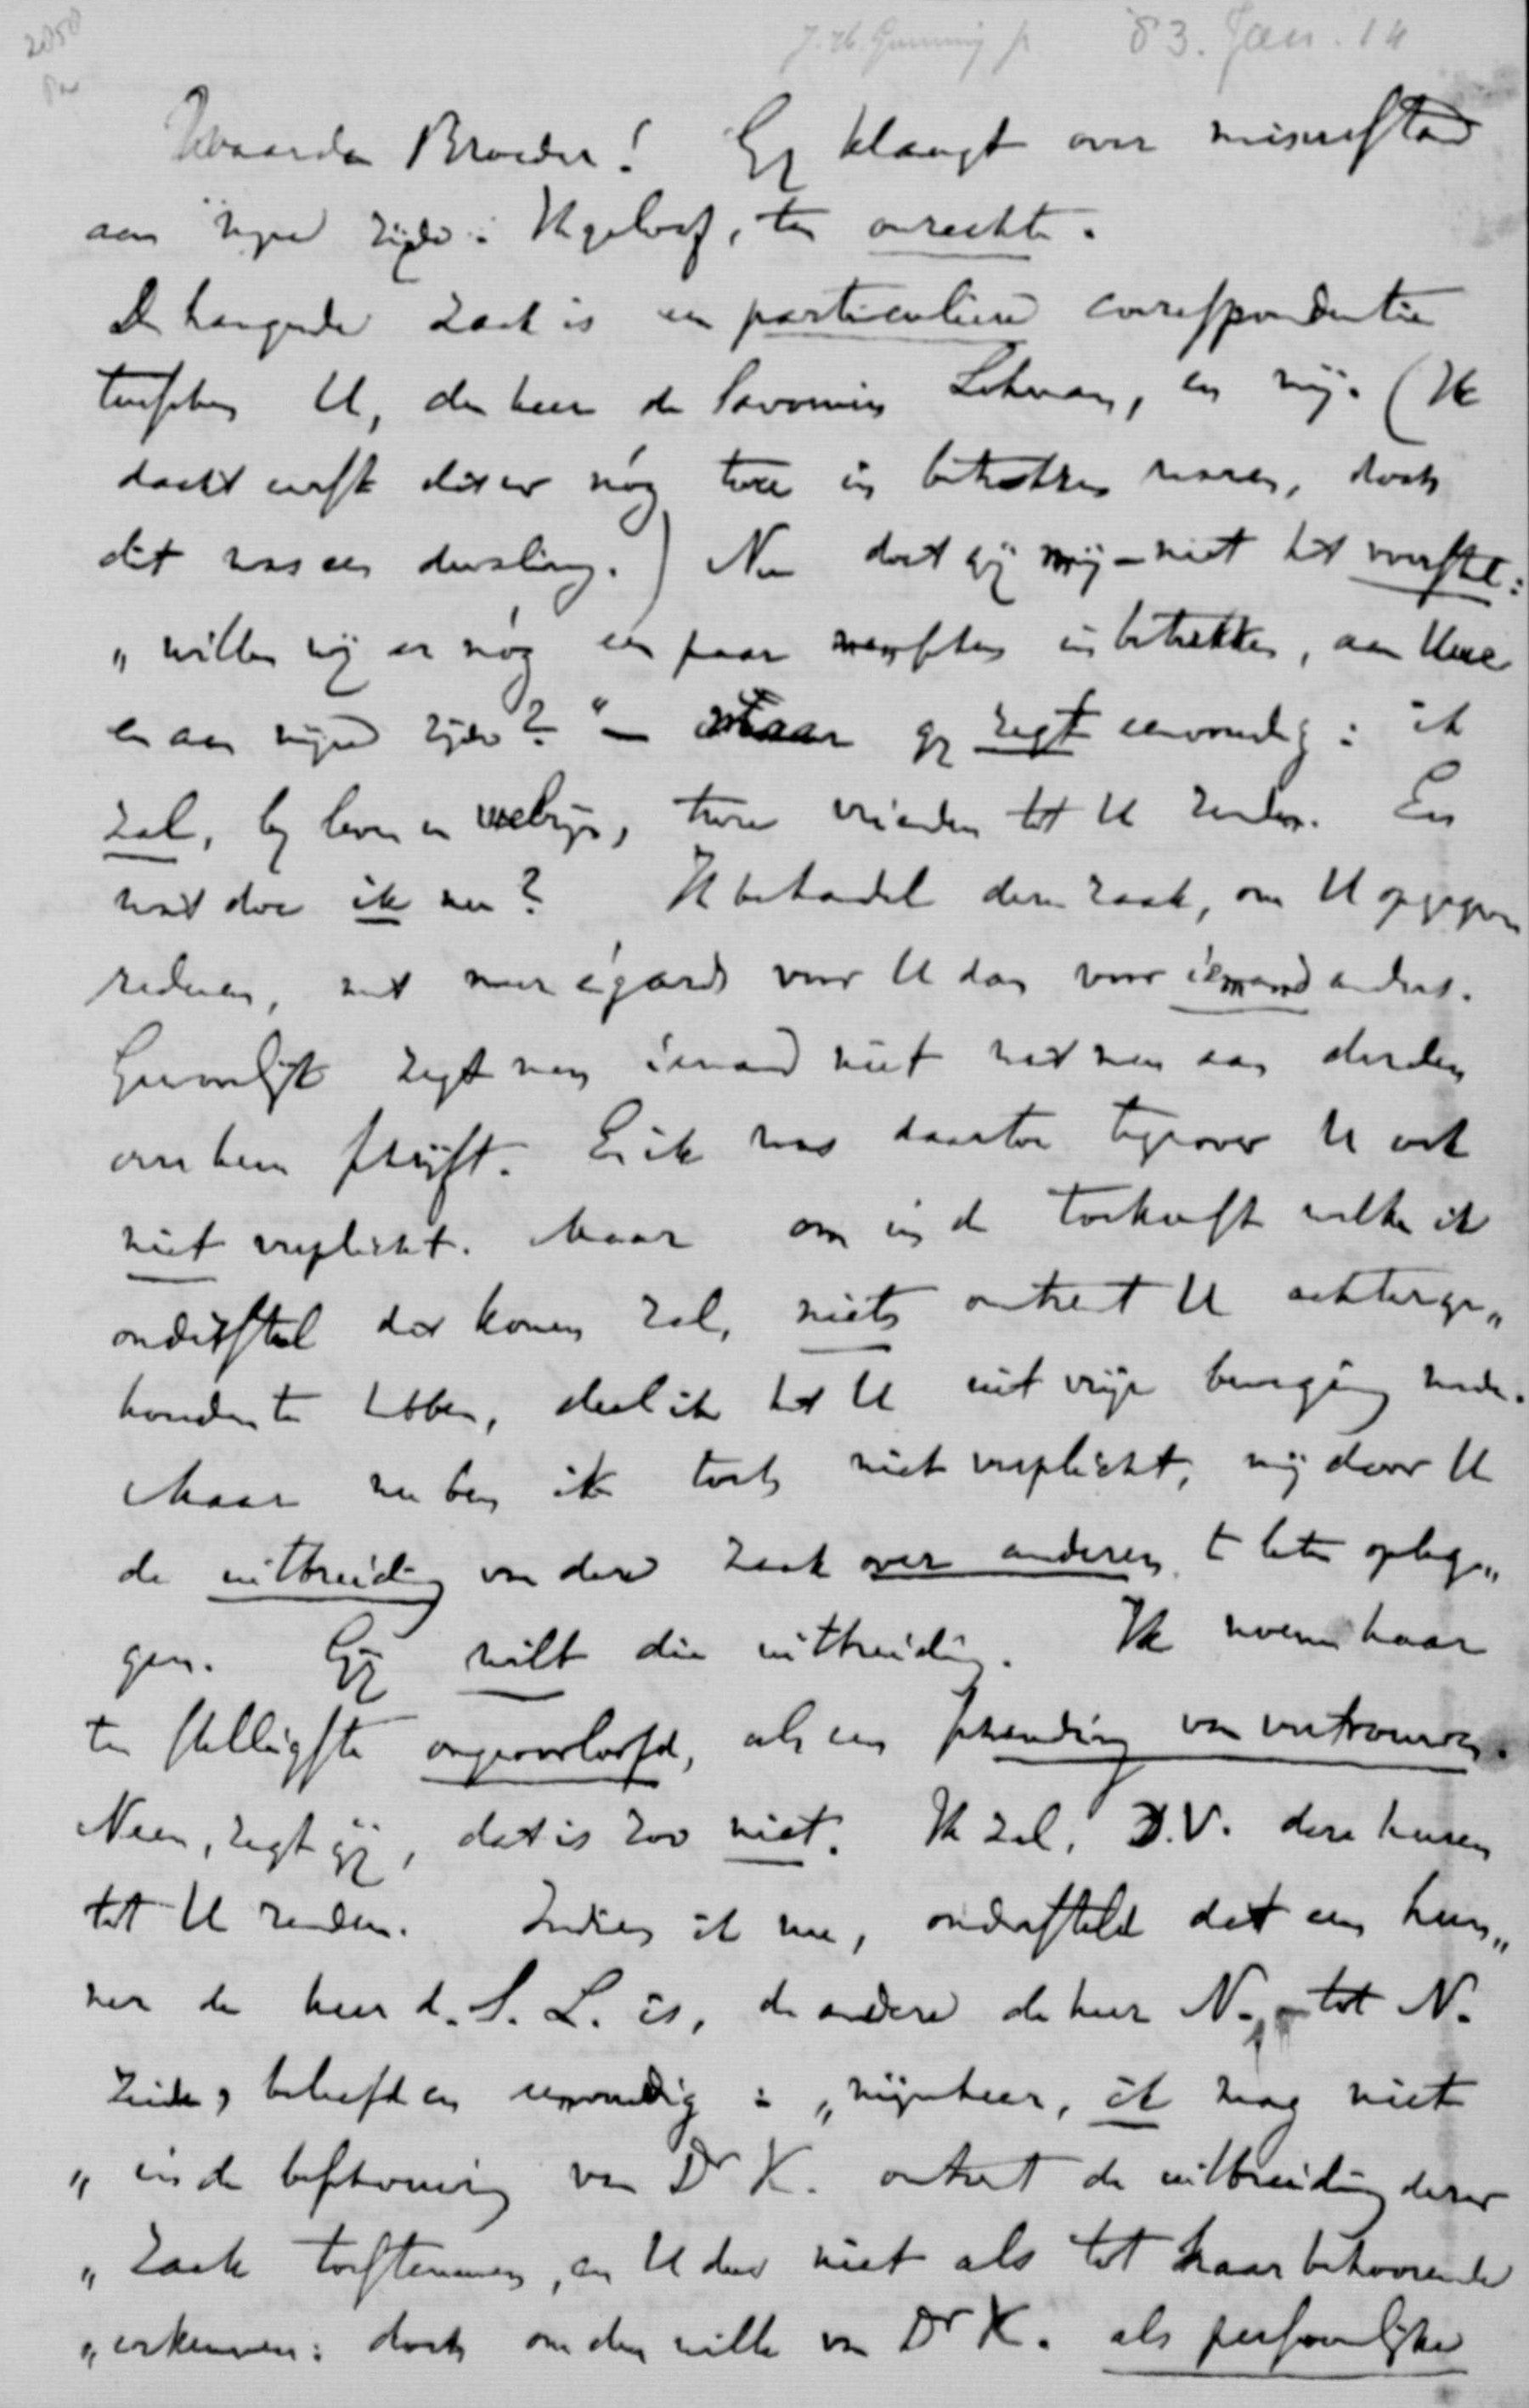 2050
J. H. Gunning jr 83. Jan. 14
Waarde Broeder! Gij klaagt over misverstand
aan mijne zijde: Ik geloof, ten onrechte.
De hangende zaak is een particuliere correspondentie
tusschen U, den heer de Savornin Lohman, en mij. (Ik
dacht eerst dat er nóg twee in betrokken waren, doch
dit was een dwaling.) Nu doet gij mij niet het voorstel:
„willen wij er nóg een paar menschen in betrekken, aan Uwe
en aan mijne zijde?" — Maar gij zegt eenvoudig: ik
zal, bij leven en welzijn, twee vrienden tot U zenden. En
wat doe ik nu? Ik behandel deze zaak, om U opgegeven
redenen, met meer égards voor U dan voor iemand anders.
Gewoonlijk zegt men iemand niet wat men aan derden
over hem schrijft. En ik was daartoe tegenover U ook
niet verplicht. Maar om in de toekomst welke ik
onderstel dat komen zal, niets omtrent U achterge„
houden te hebben, deel ik het U uit vrije beweging mede.
Maar nu ben ik toch niet verplicht, mij door U
de uitbreiding van deze zaak over anderen te laten opleg„
gen. Gij wilt die uitbreiding. Ik noem haar
ten stelligste ongeoorloofd, als een schending van vertrouwen.
Neen, zegt gij, dat is zoo niet. Ik zal, D.V. deze heeren
tot U zenden. Indien ik nu, ondersteld dat een hun„
ner de heer d. S. L. is, de andere de heer N., tot N.
zeide, beleefd en eenvoudig: „mijnheer, ik mag niet
„in de beschouwing van Dr K. omtrent de uitbreiding dezer
„zaak toestemmen, en U dus niet als tot haar behoorende
„erkennen: doch om den wille van Dr K. als persoonlijke